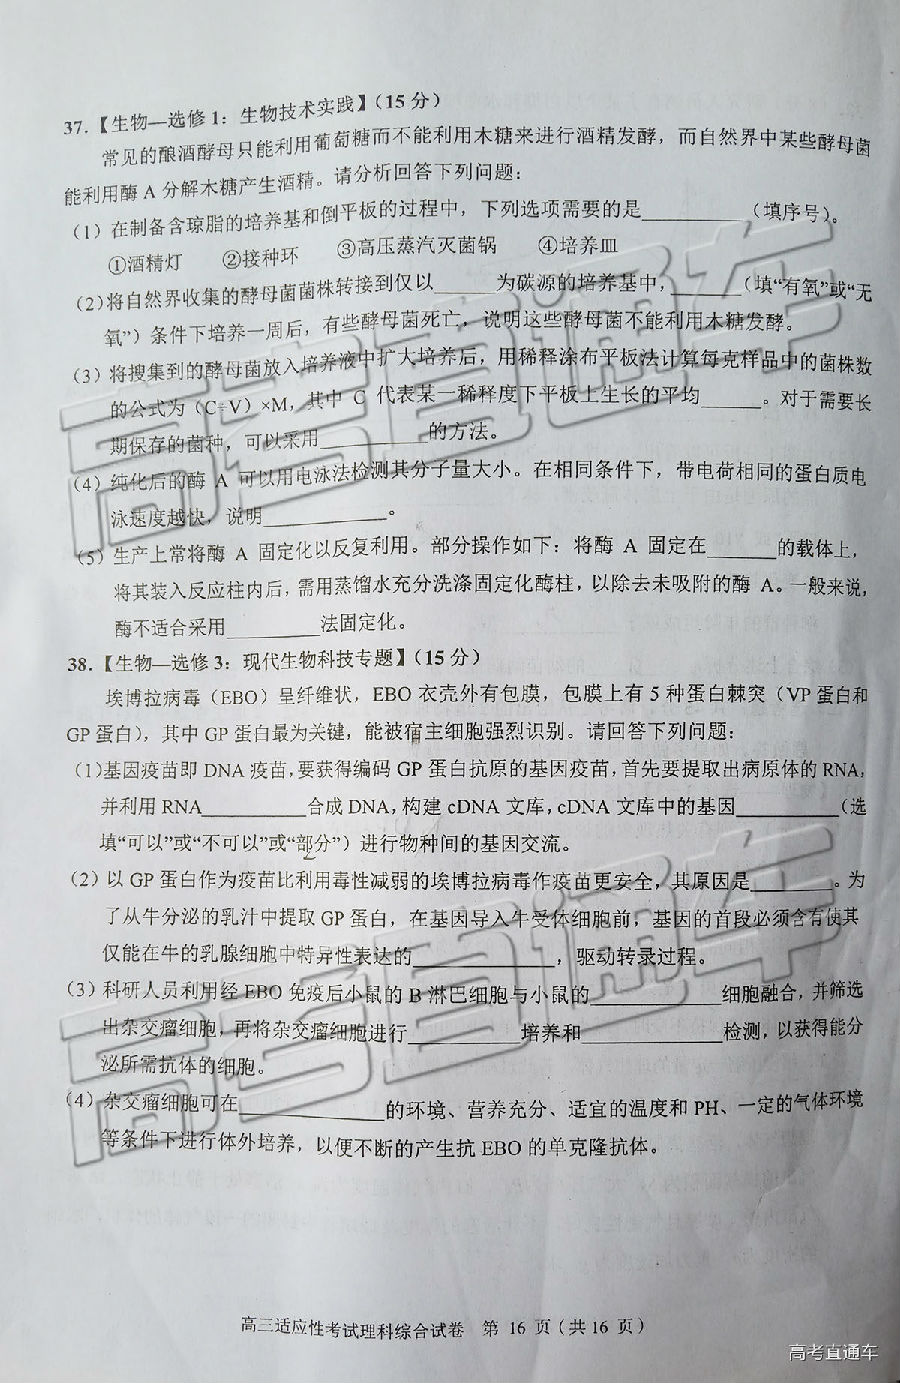 37.【生物—选修1：生物技术实践】（15分）
常见的酿酒酵母只能利用葡萄糖而不能利用木糖来进行酒精发酵，而自然界中某些酵母菌
能利用酶A分解木糖产生酒精。请分析回答下列问题：
（1）在制备含琼脂的培养基和倒平板的过程中，下列选项需要的是________（填序号）。
①酒精灯 ②接种环 ③高压蒸汽灭菌锅 ④培养皿
（2）将自然界收集的酵母菌菌株转接到仅以______为碳源的培养基中，______（填“有氧”或“无
氧”）条件下培养一周后，有些酵母菌死亡，说明这些酵母菌不能利用木糖发酵。
（3）将搜集到的酵母菌放入培养液中扩大培养后，用稀释涂布平板法计算每克样品中的菌株数
的公式为（C÷V）×M，其中 C 代表某一稀释度下平板上生长的平均______。对于需要长
期保存的菌种，可以采用__________的方法。
（4）纯化后的酶 A 可以用电泳法检测其分子量大小。在相同条件下，带电荷相同的蛋白质电
泳速度越快，说明___________。
（5）生产上常将酶 A 固定化以反复利用。部分操作如下：将酶 A 固定在_______的载体上，
将其装入反应柱内后，需用蒸馏水充分洗涤固定化酶柱，以除去未吸附的酶 A。一般来说，
酶不适合采用________法固定化。
38.【生物—选修3：现代生物科技专题】（15分）
埃博拉病毒（EBO）呈纤维状，EBO衣壳外有包膜，包膜上有5种蛋白棘突（VP蛋白和
GP蛋白），其中GP蛋白最为关键，能被宿主细胞强烈识别。请回答下列问题：
（1）基因疫苗即DNA疫苗，要获得编码GP蛋白抗原的基因疫苗，首先要提取出病原体的RNA，
并利用RNA_________合成DNA，构建cDNA文库，cDNA文库中的基因_________（选
填“可以”或“不可以”或“部分”）进行物种间的基因交流。
（2）以GP蛋白作为疫苗比利用毒性减弱的埃博拉病毒作疫苗更安全，其原因是________。为
了从牛分泌的乳汁中提取GP蛋白，在基因导入牛受体细胞前，基因的首段必须含有使其
仅能在牛的乳腺细胞中特异性表达的____________，驱动转录过程。
（3）科研人员利用经EBO免疫后小鼠的B淋巴细胞与小鼠的___________细胞融合，并筛选
出杂交瘤细胞，再将杂交瘤细胞进行__________培养和____________检测，以获得能分
泌所需抗体的细胞。
（4）杂交瘤细胞可在____________的环境、营养充分、适宜的温度和PH、一定的气体环境
等条件下进行体外培养，以便不断的产生抗EBO的单克隆抗体。
高三适应性考试理科综合试卷 第 16 页（共16 页）
高考直通车
高考直通车
高考直通车